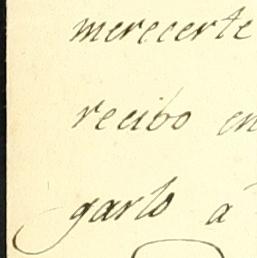 merecerte
recibo en
garlo à